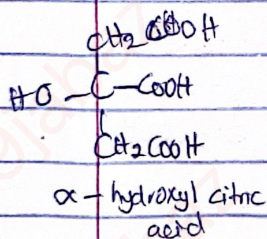 CH2COOH
HO-C-COOH
CH2COOH
α-hydroxyl citric
acid